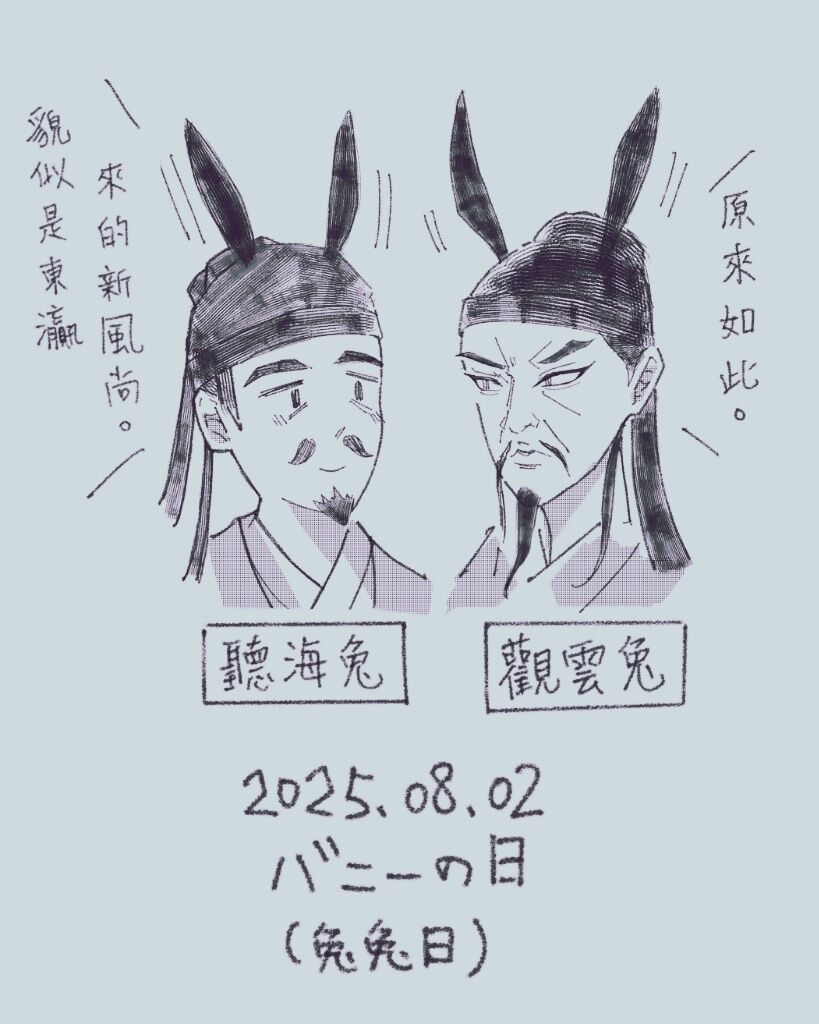 貌似是東瀛
來的新風尚。
原來如此。
聽海兔
觀雲兔
2025.08.02
バニーの日
(兔兔日)